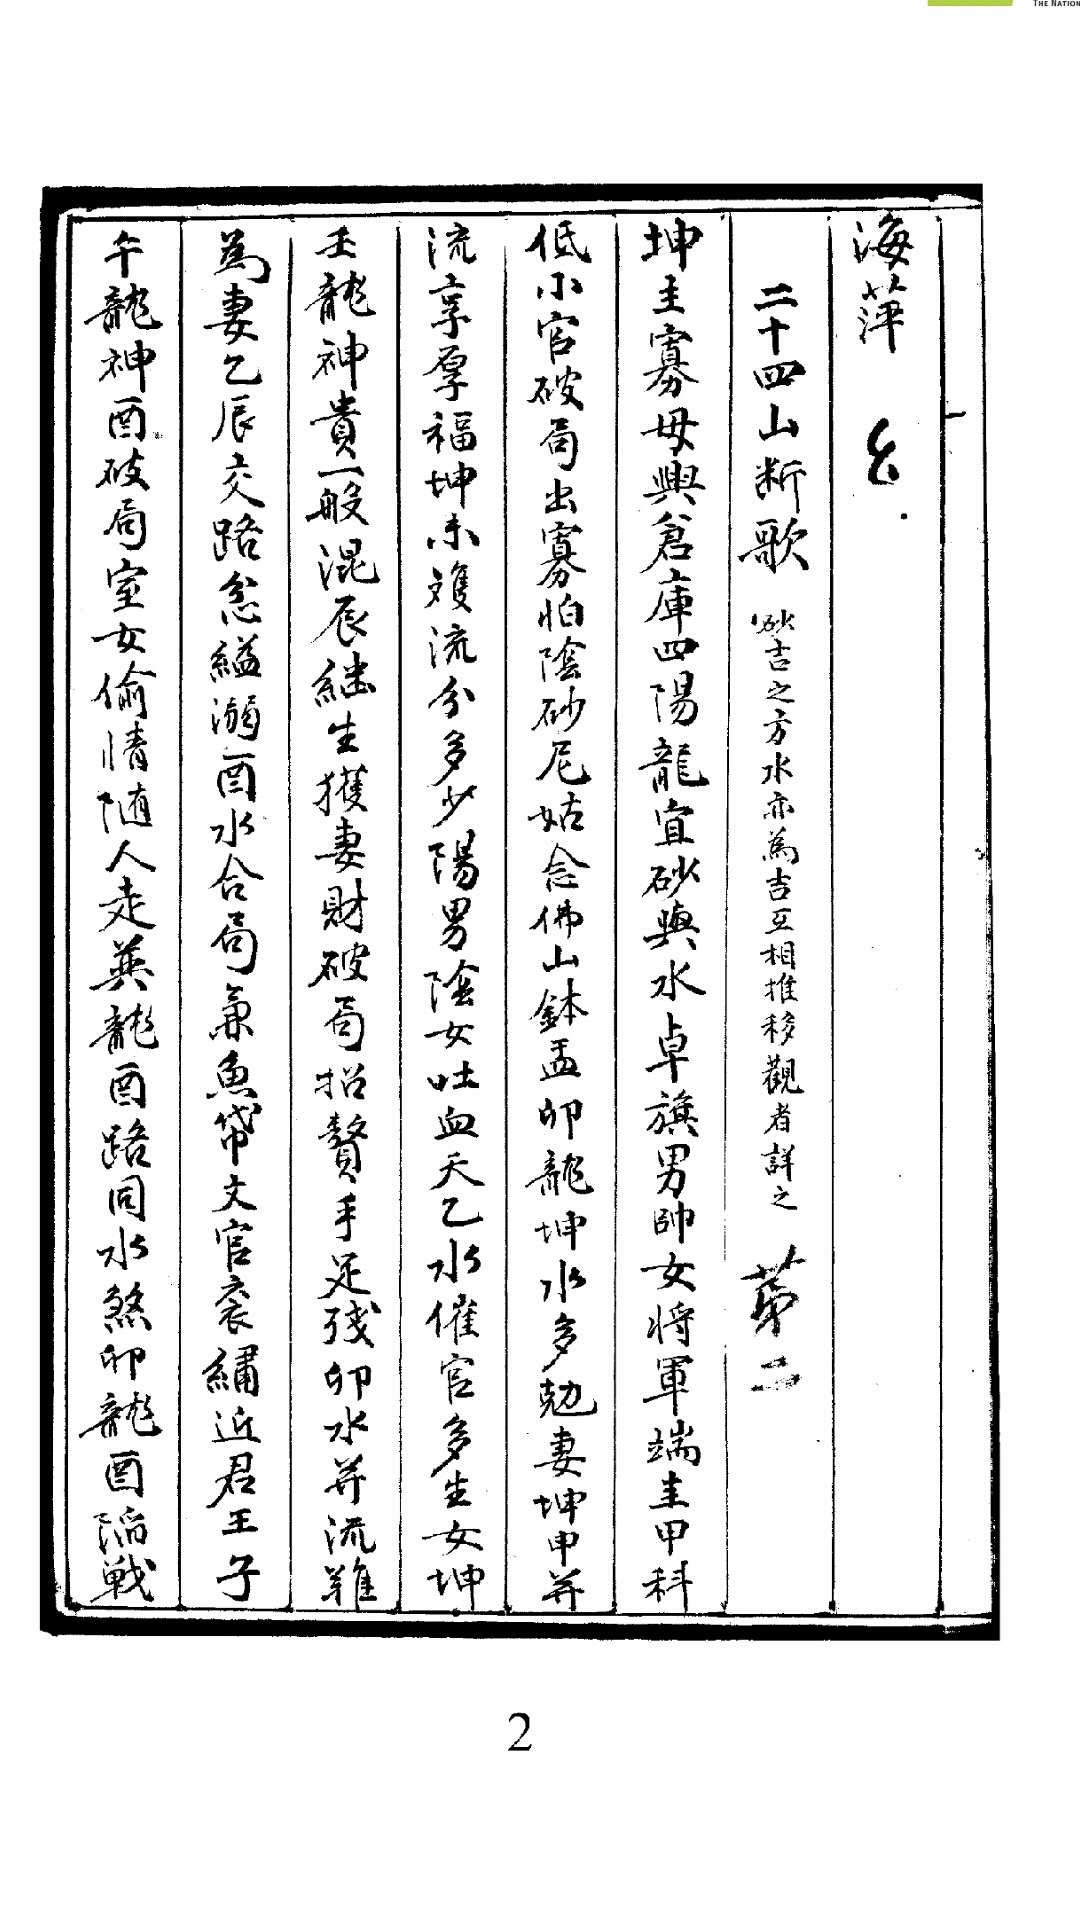 THE NATION
海萍
二十四山断歌 砂吉之方水亦為吉互相推移觀者詳之 第二
坤主寡母與倉庫四陽龍宜砂與水卓旗男帥女将軍端主甲科
低小官破局出寡怕陰砂尼姑念佛山鉢盂卯龍坤水多尅妻坤申并
流享厚福坤未雙流分多少陽男陰女吐血天乙水催官多生女坤
壬龍神貴一般混辰継生獲妻財破局招贅手足残卯水并流難
為妻乙辰交路忿縊溺酉水合局兼魚袋文官衮繡近君王子
午龍神酉破局室女偷情随人走巽龍酉路同水煞卯龍酉陷戦
2